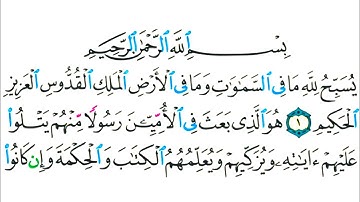 بِسْمِ ٱللَّهِ ٱلرَّحْمَٰنِ ٱلرَّحِيمِ
يُسَبِّحُ لِلَّهِ مَا فِى ٱلسَّمَٰوَٰتِ وَمَا فِى ٱلْأَرْضِ ٱلْمَلِكِ ٱلْقُدُّوسِ ٱلْعَزِيزِ
ٱلْحَكِيمِ ١ هُوَ ٱلَّذِى بَعَثَ فِى ٱلْأُمِّيِّـۧنَ رَسُولًا مِّنْهُمْ يَتْلُوا۟
عَلَيْهِمْ ءَايَٰتِهِۦ وَيُزَكِّيهِمْ وَيُعَلِّمُهُمُ ٱلْكِتَٰبَ وَٱلْحِكْمَةَ وَإِن كَانُوا۟